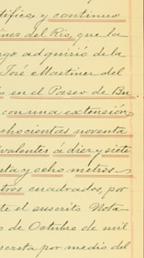 dificio, y continuo
ines del Rio, que la
go adquirió de la
José Martinez del
o en el Paseo de Bu
con una extensión
ochocientas noventa
valentes á diez y siete
nta y ocho metros
tros cuadrados por
te el suscrito Nota
de Octubre de mil
ecreta por medio del